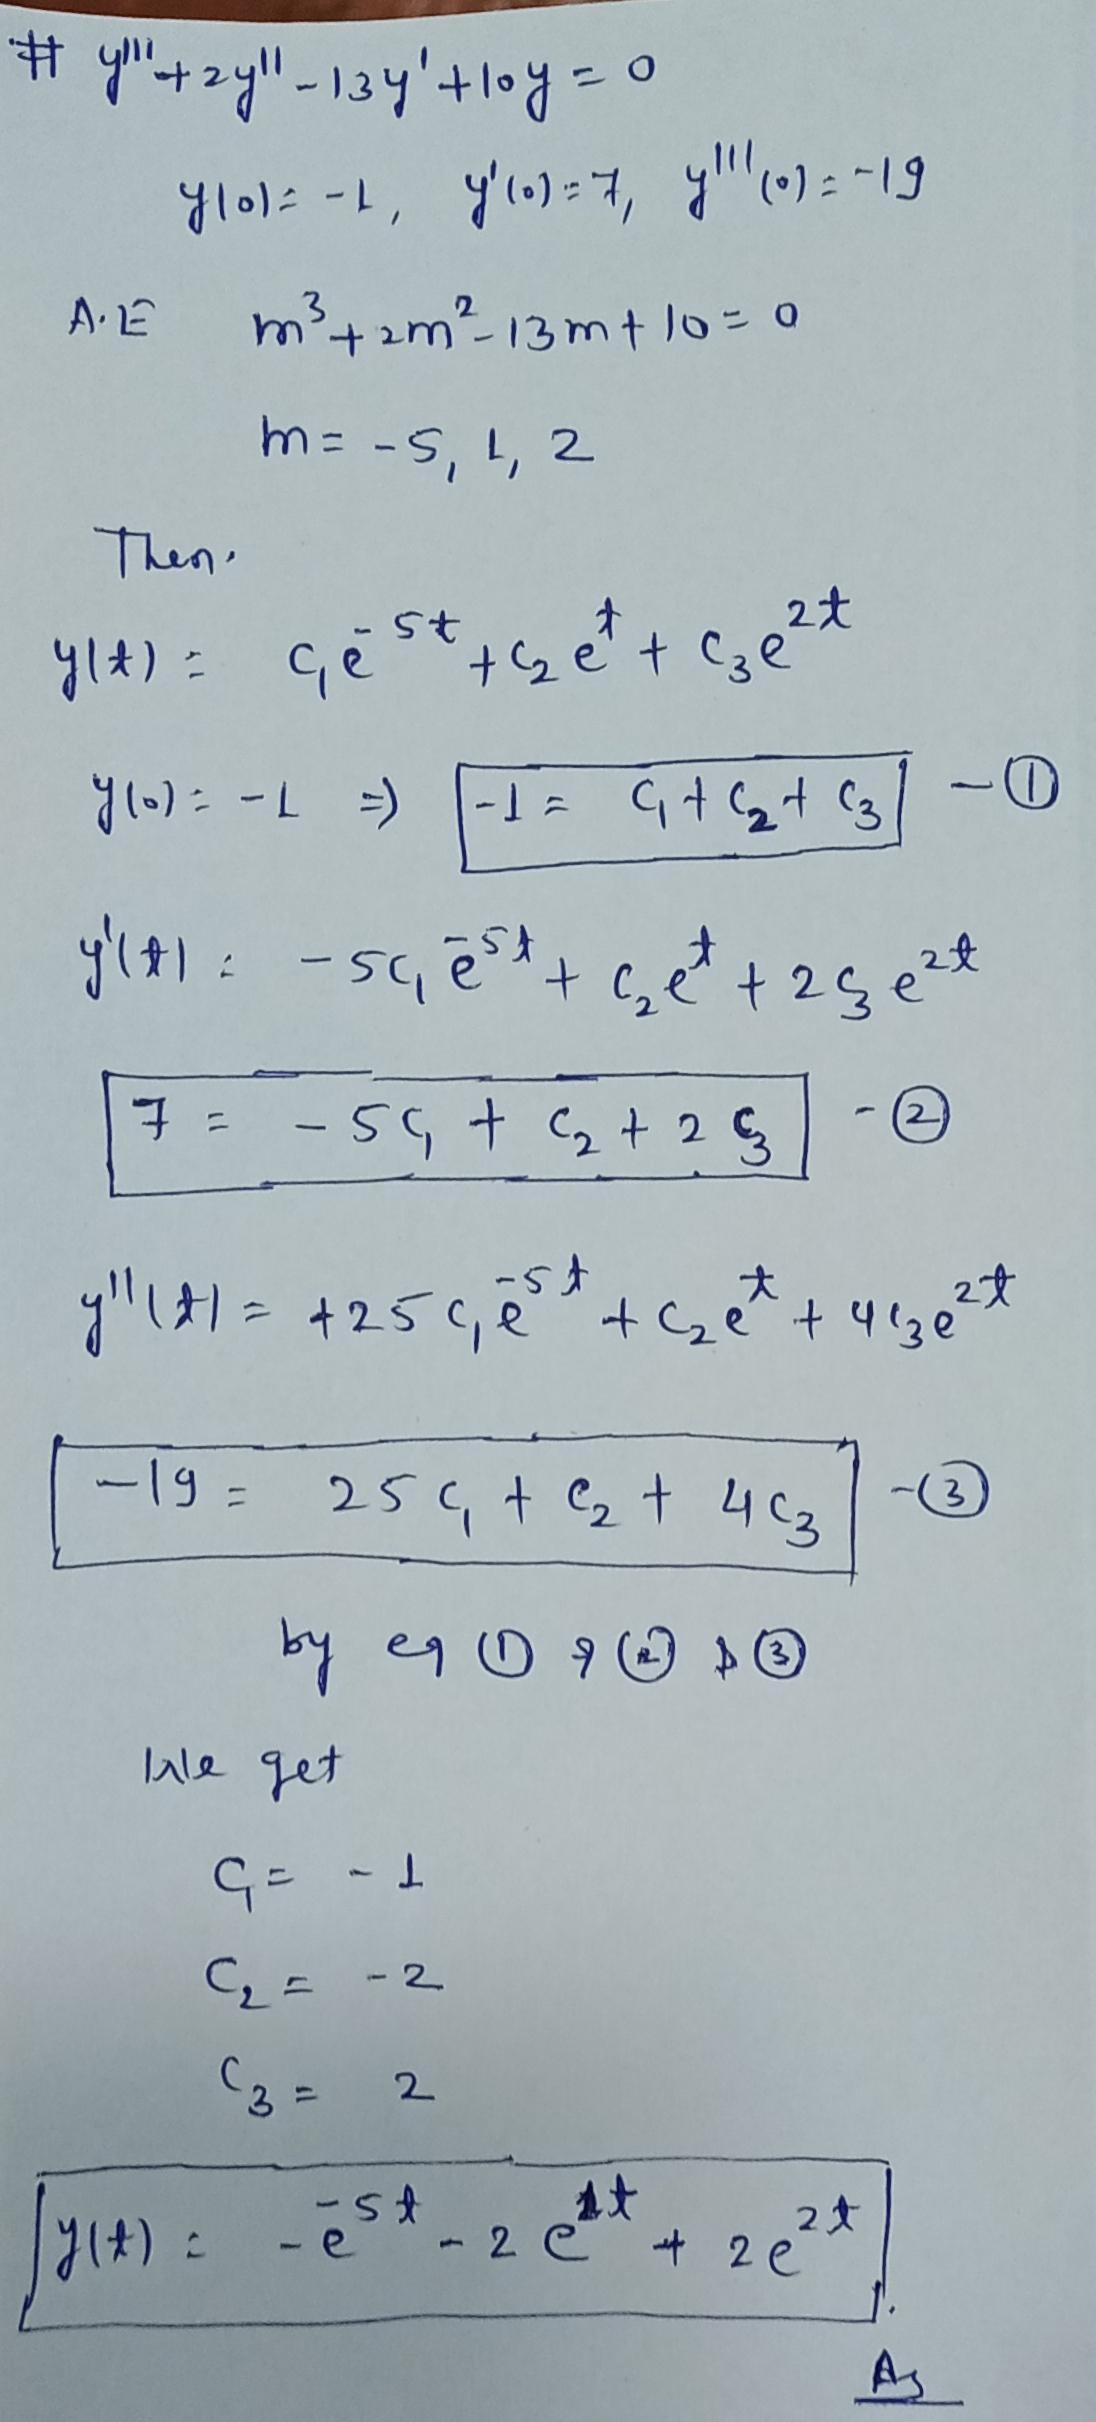 # y''' + 2y'' - 13y' + 10y = 0
y(0) = -1, y'(0) = 7, y'''(0) = -19
A.E m³ + 2m² - 13m + 10 = 0
m = -5, 1, 2
Then.
y(t) = C₁e^-5t + C₂e^t + C₃e^2t
y(0) = -1 => -1 = C₁ + C₂ + C₃ - ①
y'(t) = -5C₁e^-5t + C₂e^t + 2C₃e^2t
7 = -5C₁ + C₂ + 2C₃ - ②
y''(t) = +25C₁e^-5t + C₂e^t + 4C₃e^2t
-19 = 25C₁ + C₂ + 4C₃ - ③
by eq ① & ② & ③
We get
C₁ = -1
C₂ = -2
C₃ = 2
y(t) = -e^-5t - 2e^1t + 2e^2t.
As